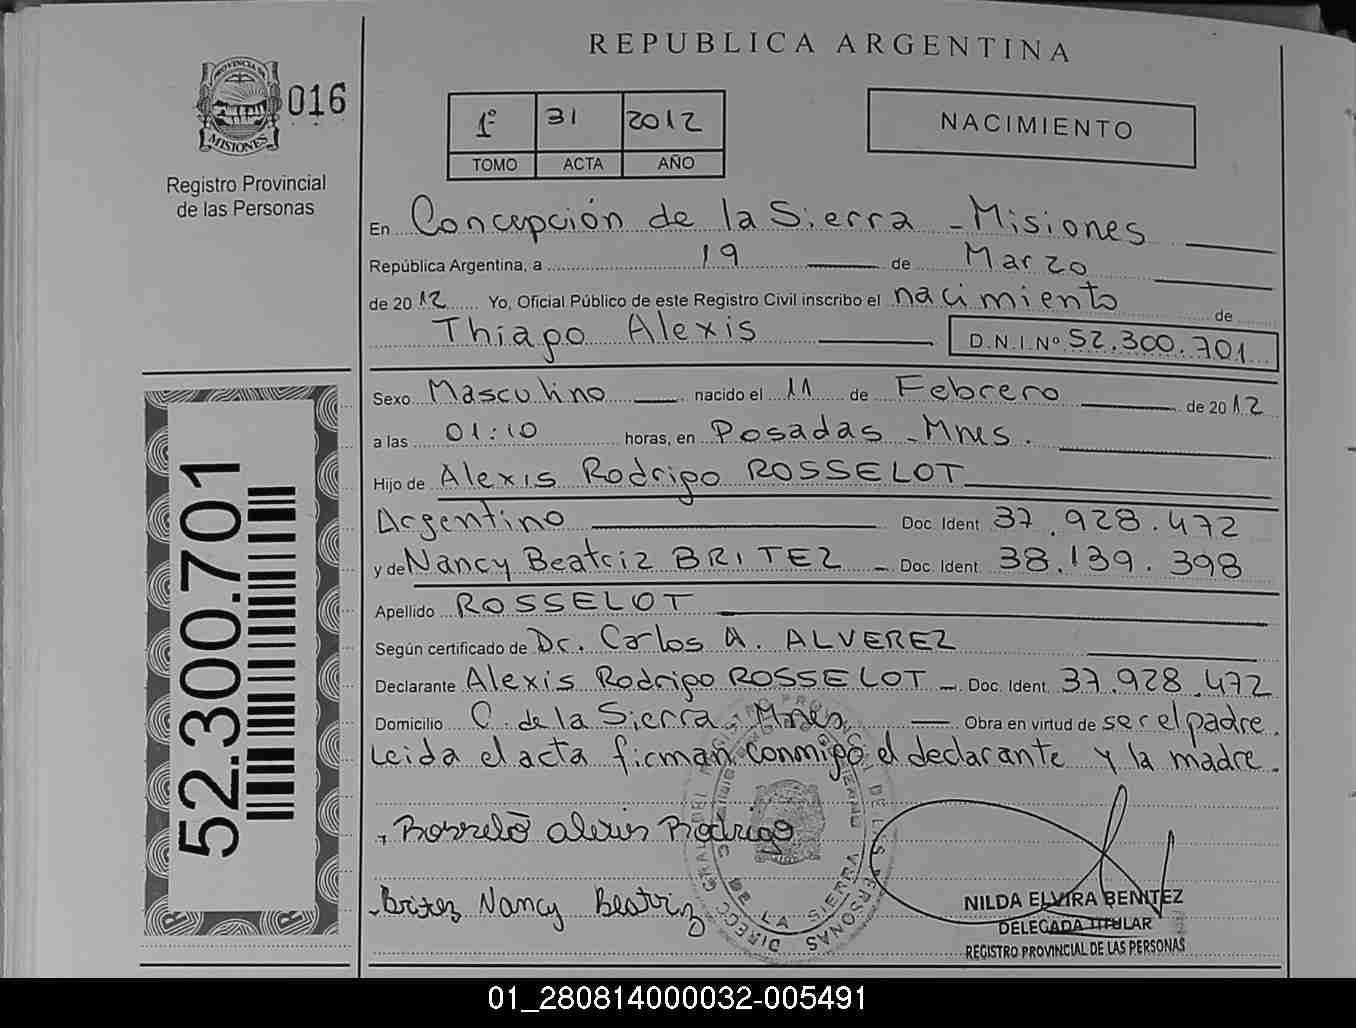 REPUBLICA ARGENTINA
PROVINCIA DE
MISIONES
016
Registro Provincial
de las Personas
1º 31 2012
TOMO ACTA AÑO
NACIMIENTO
En Concepción de la Sierra - Misiones
República Argentina, a 19 de Marzo
de 2012 Yo, Oficial Público de este Registro Civil inscribo el nacimiento de
Thiago Alexis D.N.I.Nº 52.300.701
Sexo Masculino nacido el 11 de Febrero de 2012
a las 01:10 horas, en Posadas - Mnes.
Hijo de Alexis Rodrigo ROSSELOT
Argentino Doc. Ident. 37.928.472
y de Nancy Beatriz BRITEZ - Doc. Ident. 38.139.398
Apellido ROSSELOT
Según certificado de Dr. Carlos A. ALVEREZ
Declarante Alexis Rodrigo ROSSELOT -. Doc. Ident. 37.928.472
Domicilio C. de la Sierra - Mnes Obra en virtud de ser el padre.
Leida el acta firman conmigo el declarante y la madre.
Rosselo alexis Rodrigo
Britez Nancy Beatriz
NILDA ELVIRA BENITEZ
DELEGADA TITULAR
REGISTRO PROVINCIAL DE LAS PERSONAS
52.300.701
01_280814000032-005491